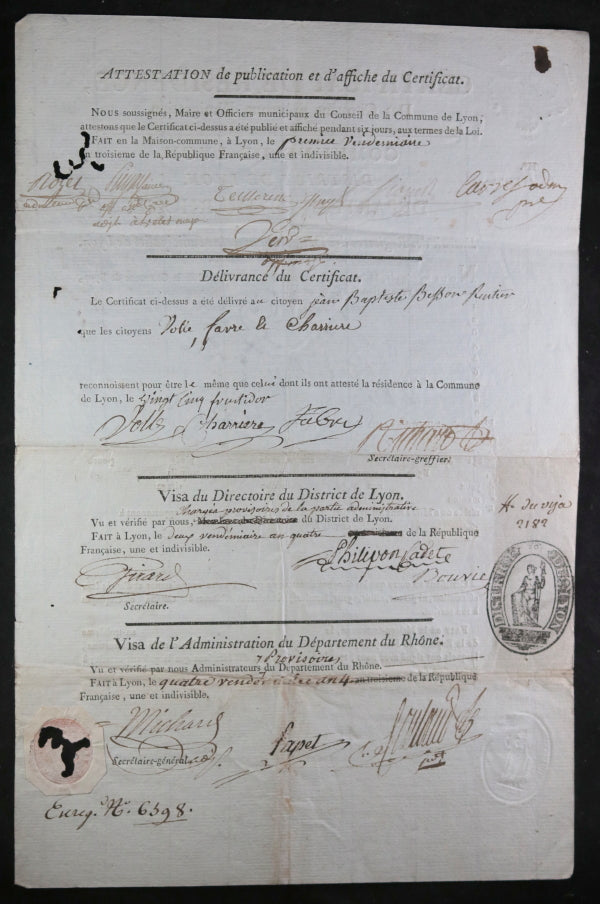 ATTESTATION de publication et d'affiche du Certificat.
NOUS soussignés, Maire et Officiers municipaux du Conseil de la Commune de Lyon,
attestons que le Certificat ci-dessus a été publié et affiché pendant six jours, aux termes de la Loi.
FAIT en la Maison-commune, à Lyon, le premier Vendemiaire
an troisieme de la République Française, une et indivisible.
Délivrance du Certificat.
Le Certificat ci-dessus a été délivré au citoyen jean Baptiste Besson Rentier
que les citoyens Volle, favre & charriere
reconnoissent pour être le même que celui dont ils ont attesté la résidence à la Commune
de Lyon, le vingt Cinq fructidor
Volle Charriere Fabre
Secrétaire-greffier.
Visa du Directoire du District de Lyon.
chargés provisoires de la partie administrative
Vu et vérifié par nous, du District de Lyon.
FAIT à Lyon, le deux vendémiaire an quatre de la République
Française, une et indivisible.
Nº. du visa
2182
Philipon cadet
Girard Bouvier
Secrétaire.
DISTRICT DE LYON
Visa de l'Administration du Département du Rhône.
Provisoires
Vu et vérifié par nous Administrateurs du Département du Rhône.
FAIT à Lyon, le quatre vendemiaire an 4 an troisieme de la République
Française, une et indivisible.
Michard
Secrétaire-général
Papet
Enreg. Nº 6598.